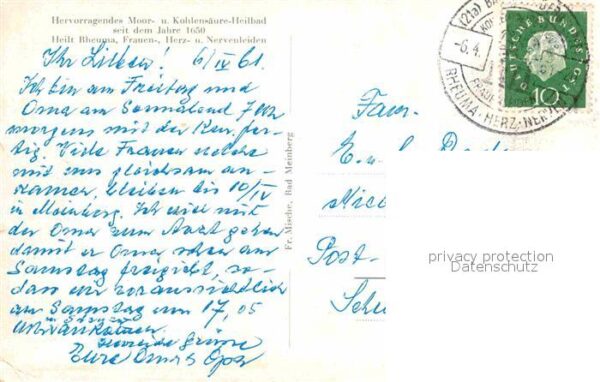 Hervorragendes Moor- u. Kohlensäure-Heilbad
seit dem Jahre 1650
Heilt Rheuma, Frauen-, Herz- u. Nervenleiden
Ihr Lieben! 6/IV 61.
Ich bin am Freitag und
Oma am Sonnabend 7 Uhr
morgens mit der Kur fer-
tig. Viele Frauen welche
mit uns gleichsam an-
kamen, bleiben bis 10/IV
in Meinberg. Ich will mit
der Oma zum Arzt gehen
damit er Oma schon am
Samstag freigibt, so-
dass wir voraussichtlich
am Samstag um 17,05
in
ankommen.
Herzliche Grüsse
Eure Oma & Opa
Fr. Mische, Bad Meinberg
Fam.
E. u.
Post-
(21a) BA
-6.4.
RHEUMA-HERZ-NERVE
DEUTSCHE BUNDESPOST
10
privacy protection
Datenschutz